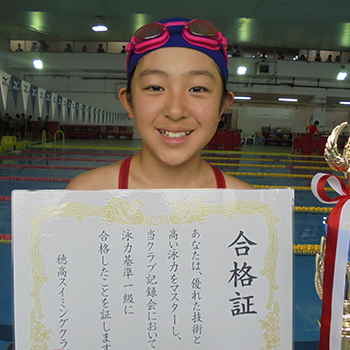 合格証
あなたは、優れた技術と
高い泳力をマスターし、
当クラブ記録会において
泳力基準一級に
合格したことを証します
穂高スイミングクラ